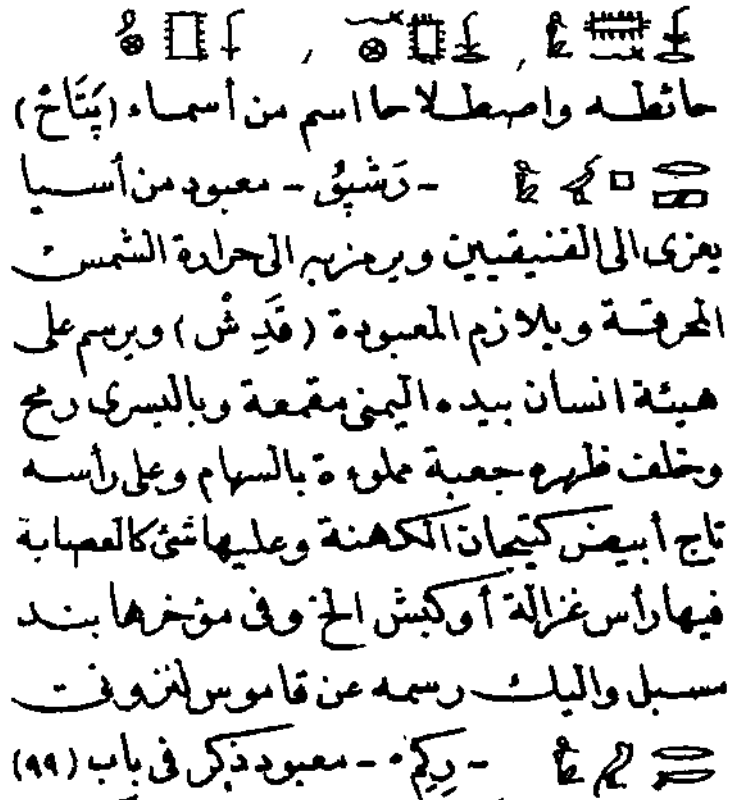 حائطه واصطلاحا اسم من أسماء (پَتَاحْ)
- رَشْپُو - معبود من أسيا
يعزى الى الفنيقيين ويرمز به الى حرارة الشمس
المحرقة ويلازم المعبودة (قَدِشْ) ويرسم على
هيئة انسان بيده اليمنى مقمعة وباليسرى رمح
وخلف ظهره جعبة مملوءة بالسهام وعلى رأسه
تاج أبيض كتيجان الكهنة وعليها شئ كالعصابة
فيها رأس غزالة أو كبش الخ وفى مؤخرها بند
مسبل واليك رسمه عن قاموس لنزونت
- رِكِمْ - معبود ذكر فى باب (٩٩)